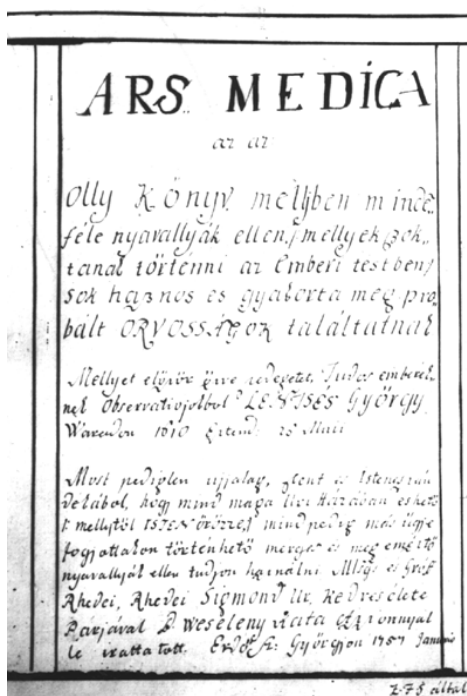 ARS MEDICA
az az
Olly Könyv mellyben minde„
féle nyavallyák ellen, /mellyek szok„
tanak történni az Emberi testben/
sok haznos es gyakorta meg pro„
bált ORVOSSÁGOK találtatnak
Mellyet először öszve szedegetet, Tudos emberek„
nek Observatiojokbol LENTSES György
Waradon 1610 Eztend: 28 Maii
Most pediglen ujjalag, szent és Istenes szán
dekából, hogy mind maga Ury Házában eshető
k mellytöl ISTEN ÖRÖZZEJ mind pedig más ügye
fogyottakon törtenhető merges és meg emésztő
nyavallyák ellen tudjon haználni Mlsgs es Gróf
Rhedei, Rhedei Sigmond Ur, Kedves élete
Párjával B. Weseleny Kata Aszszonnyal
le irattatott. Erdő Sz: Györgyön 1757 Januar
Z. F. S. által